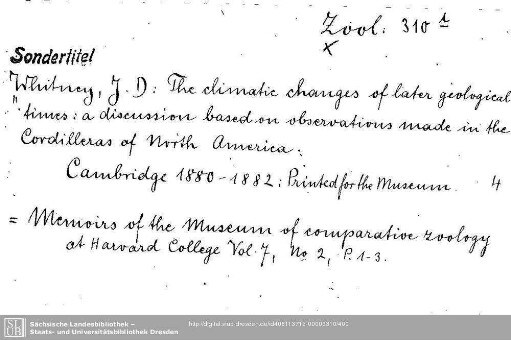 Zool. 310 t
x
Sondertitel
Whitney, J. D: The climatic changes of later geological
times: a discussion based on observations made in the
Cordilleras of North America.
Cambridge 1880-1882: Printed for the Museum. 4
= Memoirs of the Museum of comparative zoology
at Harvard College Vol. 7, No 2, P. 1-3.
Sächsische Landesbibliothek –
Staats- und Universitätsbibliothek Dresden